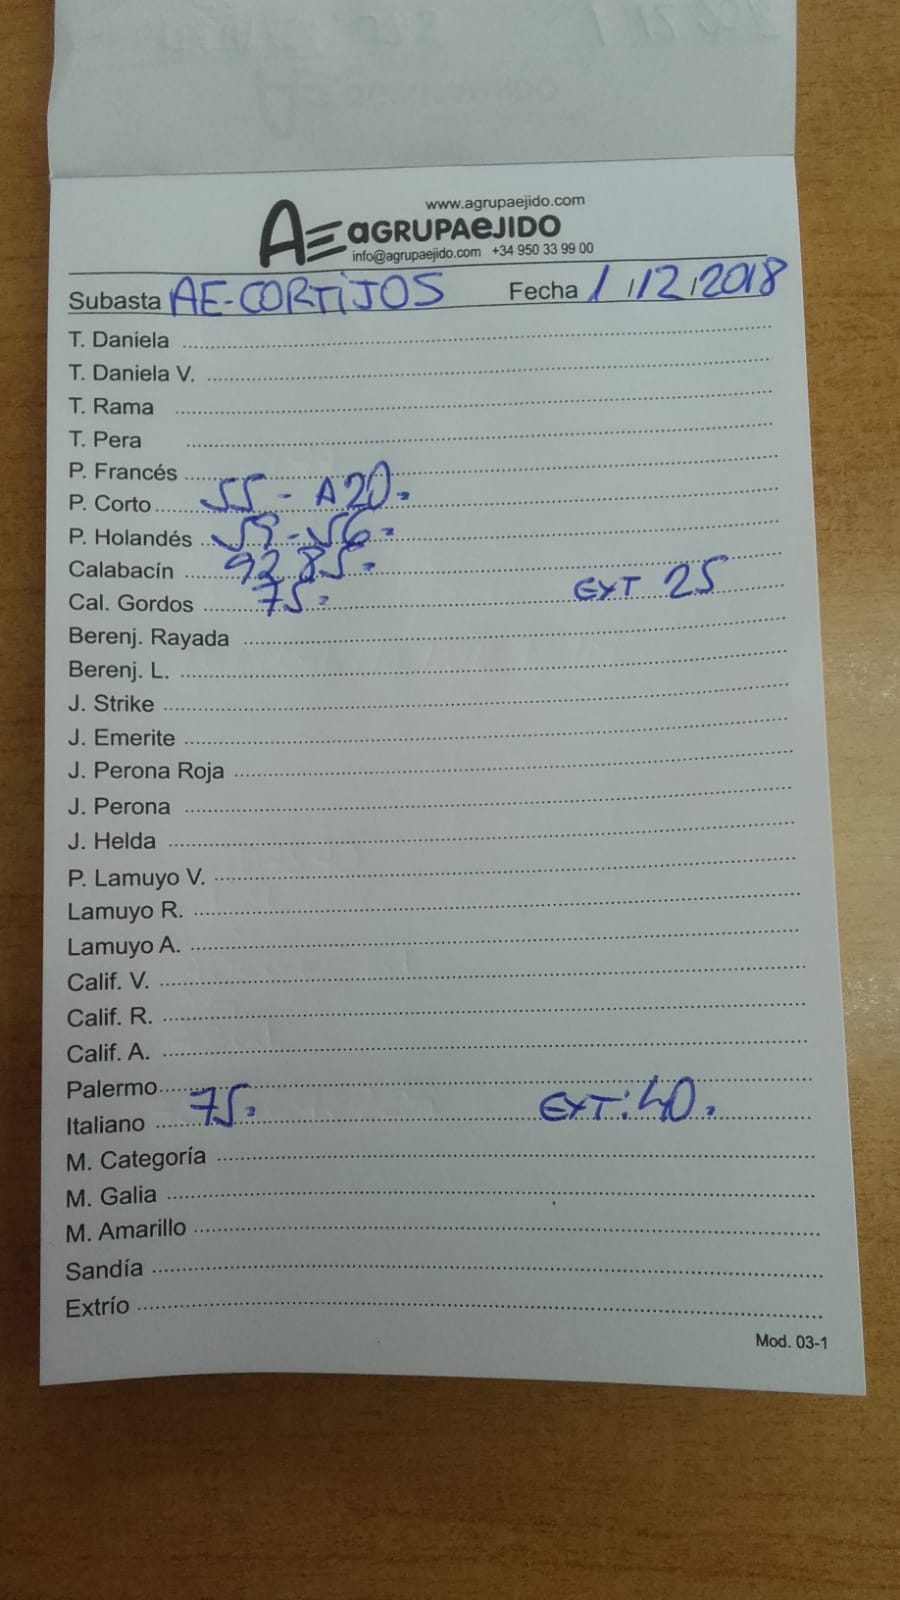 www.agrupaejido.com
AE aGRUPAeJIDO
info@agrupaejido.com +34 950 33 99 00
Subasta AE-CORTiJOS Fecha 1/12/2018
T. Daniela
T. Daniela V.
T. Rama
T. Pera
P. Francés
P. Corto 55 - A 20.
P. Holandés 59-56.
Calabacín 92 85.
Cal. Gordos 75. EXT 25
Berenj. Rayada
Berenj. L.
J. Strike
J. Emerite
J. Perona Roja
J. Perona
J. Helda
P. Lamuyo V.
Lamuyo R.
Lamuyo A.
Calif. V.
Calif. R.
Calif. A.
Palermo
Italiano 75. EXT: 40.
M. Categoría
M. Galia
M. Amarillo
Sandía
Extrío
Mod. 03-1